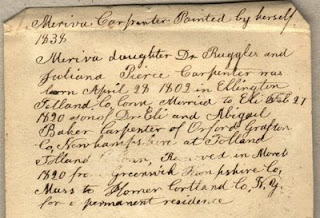 Meriva Carpenter Painted by herself
1838
Meriva daughter Dr Ruggles and
Juliana Pierce Carpenter was
born April 28 1802 in Ellington
Tolland Co, Conn, Merried to Eli Feb 27
1820 son of Dr Eli and Abigail
Baker Carpenter of Orford Grafton
Co, New hampshire at Tolland
Tolland Conn, Removed in March
1820 from Greenwich Hampshire Co,
Mass to Homer Cortland Co, N, Y,
for a permanent residence